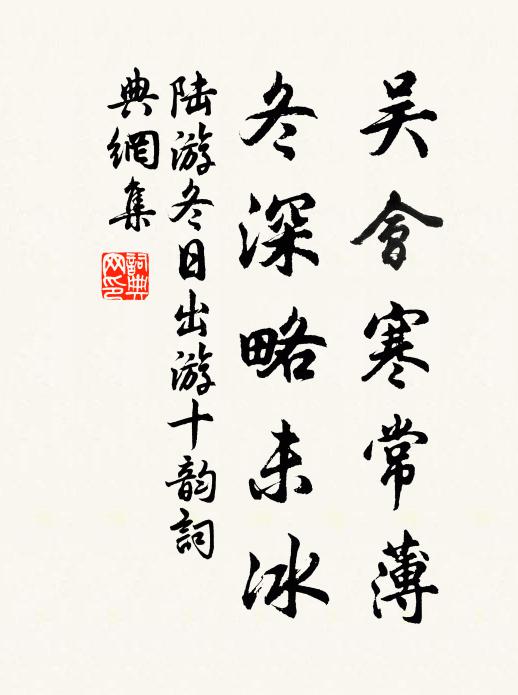 吴會寒常薄
冬深略未冰
陆游冬日出游十韵詞
典網集
詞典网印